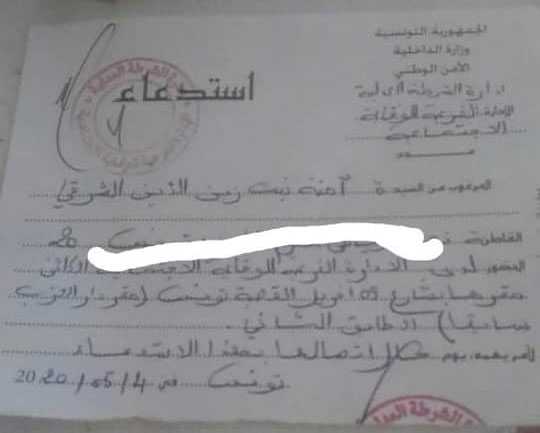 الجمهورية التونسية
وزارة الداخلية
الأمن الوطني
إدارة الشرطة العدلية
الإدارة الفرعية للوقاية
الاجتماعية
عدد
استدعاء
المرغوب من السيدة آمنة بنت زين الدين الشرقي
القاطنة تونس 20
الحضور لدى الادارة الفرعية للوقاية الاجتماعية الكائن
مقرها بشارع 09 افريل القصبة تونس (مقر دار الحزب
سابقا) الطابق الثاني.
لأمر يهمه يوم حال اتصالها بهذا الاستدعاء
تونس في 2020/05/4
الشرطة العدلية